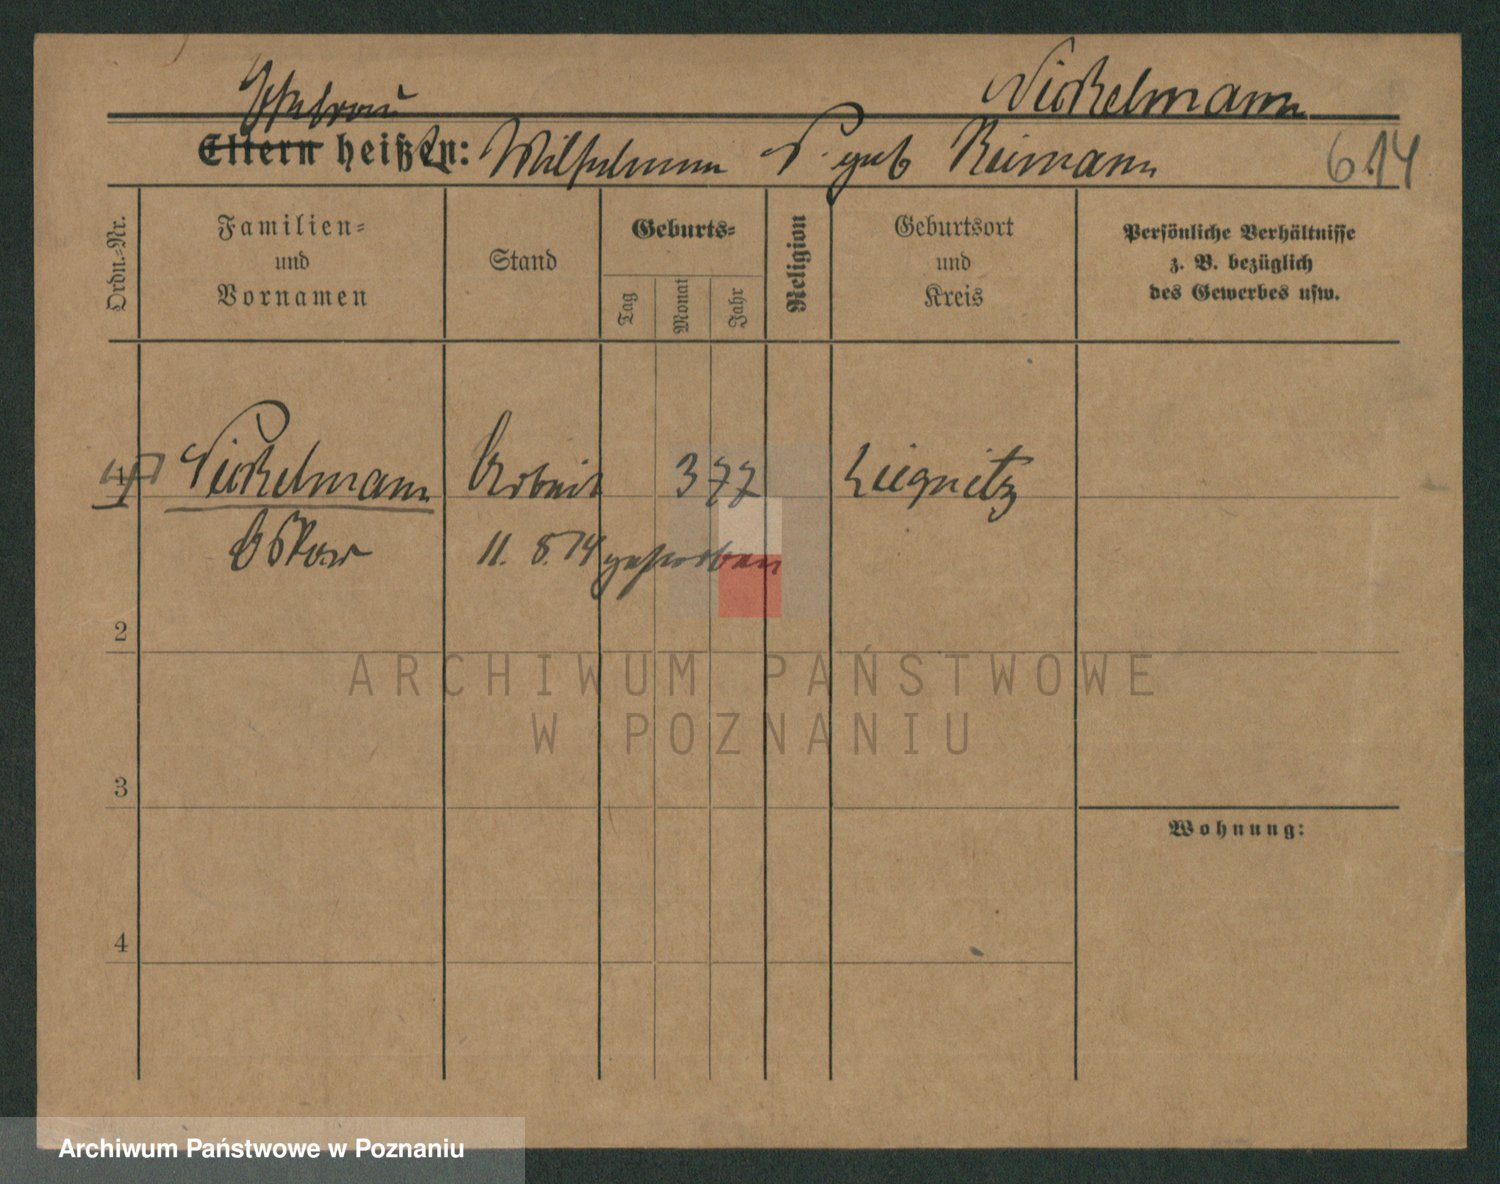 Nickelmann
Ehefrau
Eltern heißt: Wilhelmine N. geb Reimann 6.14
Ordn.-Nr.
Familien-
und
Vornamen
Stand
Geburts-
Tag
Monat
Jahr
Religion
Geburtsort
und
Kreis
Persönliche Verhältnisse
z. B. bezüglich
des Gewerbes usw.
1 Nickelmann Arbeit 3 77 Liegnitz
Oskar 11. 8. 14 gestorben
2
ARCHIWUM PAŃSTWOWE
W POZNANIU
3
Wohnung:
4
Archiwum Państwowe w Poznaniu